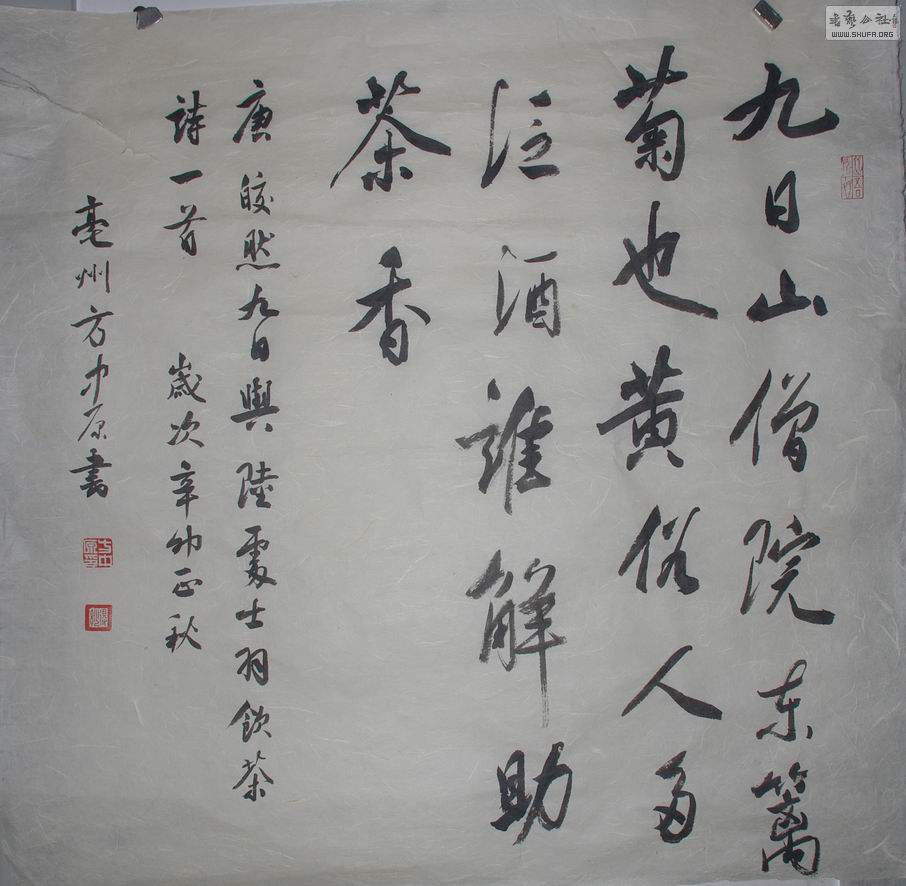 九日山僧院东篱
菊也黄俗人多
泛酒谁解助
茶香
唐皎然九日與陸處士羽飲茶
詩一首 歲次辛卯正秋
亳州方中原書
書艺公社
WWW.SHUFA.ORG